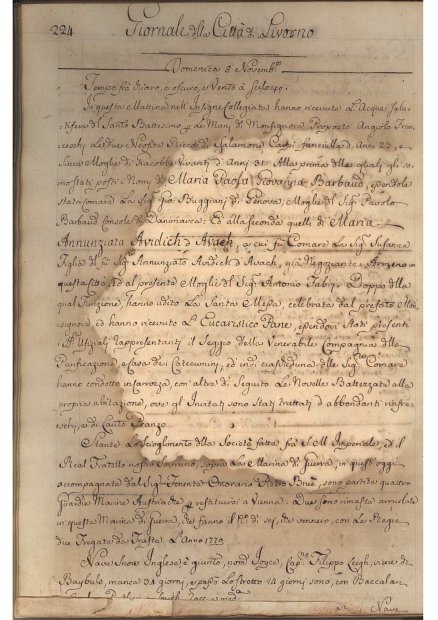 224
Giornale della Città di Livorno
Domenica 8 Novembre
Tempo frà chiaro, e oscuro, e Vento à Scilocco.
In questa Mattina nell'Insigne Collegiata hanno ricevute L'Acque Salu-
tifere del Santo Battesimo per Le Mani di Monsignore Proposto Angiolo Fran-
ceschi Le due Neofite Ricca di Salamone fanciulla d'Anni 23, e
Moglie di Jacob Vivanti d'Anni 31. Alla prima delle quali gli so-
no stati posti i Nomi di Maria Paola Giovanna Barbaud, essendole
stata Comare La Sig.ra Buggiani di Genova, Moglie del Sig.r Paolo
Barbaud Console di Danimarca: Ed alla seconda quelli di Maria
Annunziata Avidich d'Avach, a cui fù Comare La Sig.ra Susanna
Figlia del fù Sig.r Annunziato Avidich d'Avach, già Negoziante Armeno in
questa Città, ed al presente Moglie del Sig.r Antonio Fabri. Doppo della
qual Funzione, hanno udito La Santa Messa, celebrata dal prefato Mon-
signore, ed hanno ricevuto L'Eucaristico Pane, essendovi stati presenti
Uffiziali rappresentanti il Seggio della Venerabile Compagnia della
Purificazione, e Casa dei Catecumeni, ed indi ciascheduna delle Sig.re Comare
hanno condotte in Carrozza, con altre di Seguito Le Novelle Battezzate alla
propria abitazione, ove gl'Invitati sono stati trattati d'abbondanti rinfre-
schi, e di Lauto Pranzo.
Stante Lo Scioglimento della Società fatta frà S. M. Imperiale, ed il
Real Fratello nostro Sovrano, sopra La Marina di Guerra, in quest'oggi
accompagnate dal Sig.r Tenente Onorario Pietro Buè, sono partite quattro
Guardie Marine Austriache per restituirsi a Vienna. Due sono rimaste arruolate
in questa Marina di Guerra, che fanno il N.o di sei, che vennero, con Le Regie
due Fregate da Trieste L'Anno
Nave Snow Inglese, è giunto, nom.a Joyce, Cap.no Filippo Leigh, viene di
Baybulo, manca 34 giorni, e passò Lo stretto 14 giorni sono, con Baccalari
Nave